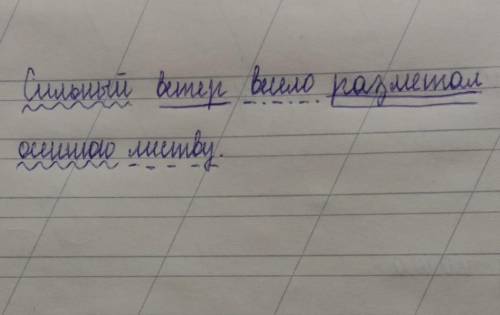 Сильный ветер весело разметал
осеннюю листву.